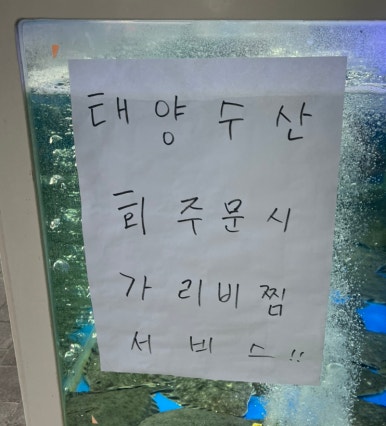 태양수산
회 주문시
가리비찜
서비스!!